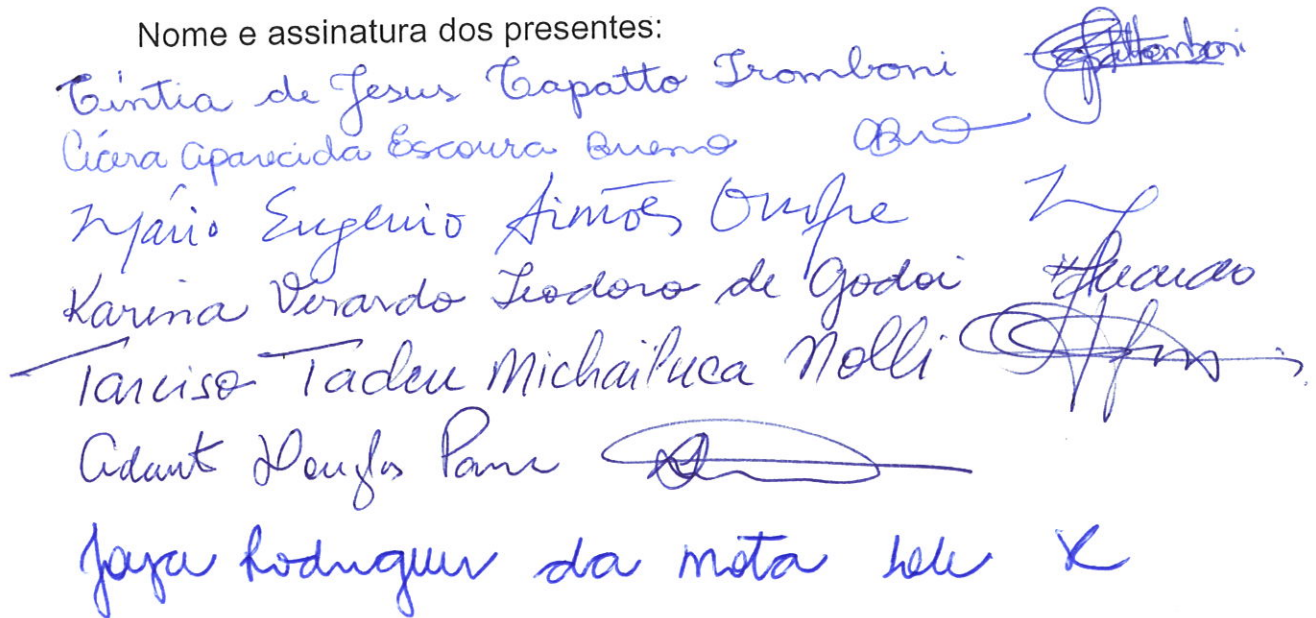 Nome e assinatura dos presentes:
Cíntia de Jesus Capatto Tromboni
Cícera Aparecida Escoura Bueno
Mário Eugenio Simões Onofre
Karina Verardo Teodoro de Godoi
Tarciso Tadeu Michailuca Nolli
Douglas
Rodrigues da Mota